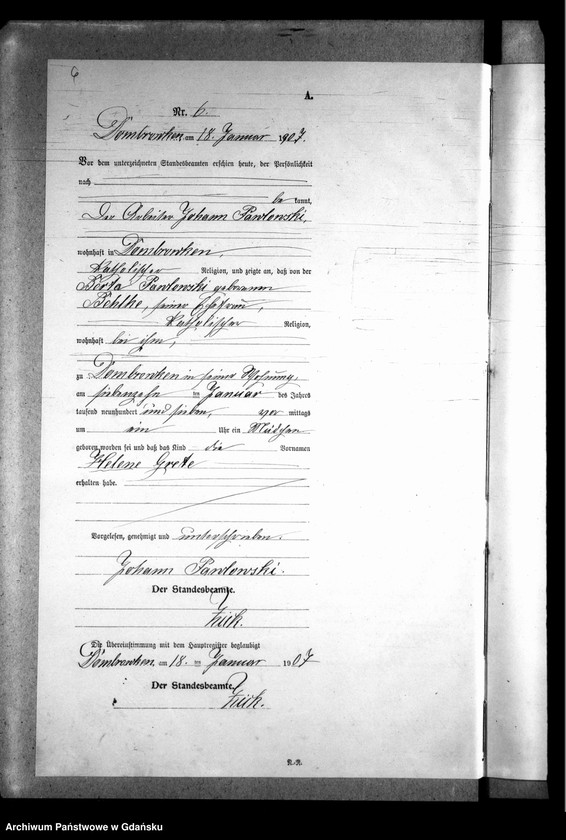 6
A.
Nr. 6.
Dombrowken, am 18. Januar 1907.
Vor dem unterzeichneten Standesbeamten erschien heute, der Persönlichkeit
nach
be kannt,
Der Arbeiter Johann Pawlowski,
wohnhaft in Dombrowken,
katholischer Religion, und zeigte an, daß von der
Berta Pawlowski geborenen
seiner Ehefrau,
katholischer Religion,
wohnhaft bei ihm,
zu Dombrowken in seiner Wohnung,
am siebenzehn ten Januar des Jahres
tausend neunhundert und sieben, vor mittags
um ein Uhr ein Mädchen
geboren worden sei und daß das Kind die Vornamen
Helene Grete
erhalten habe.
Vorgelesen, genehmigt und unterschrieben.
Johann Pawlowski.
Der Standesbeamte.
Die Übereinstimmung mit dem Hauptregister beglaubigt
Dombrowken, am 18. ten Januar 1907
Der Standesbeamte.
R.-R.
Archiwum Państwowe w Gdańsku